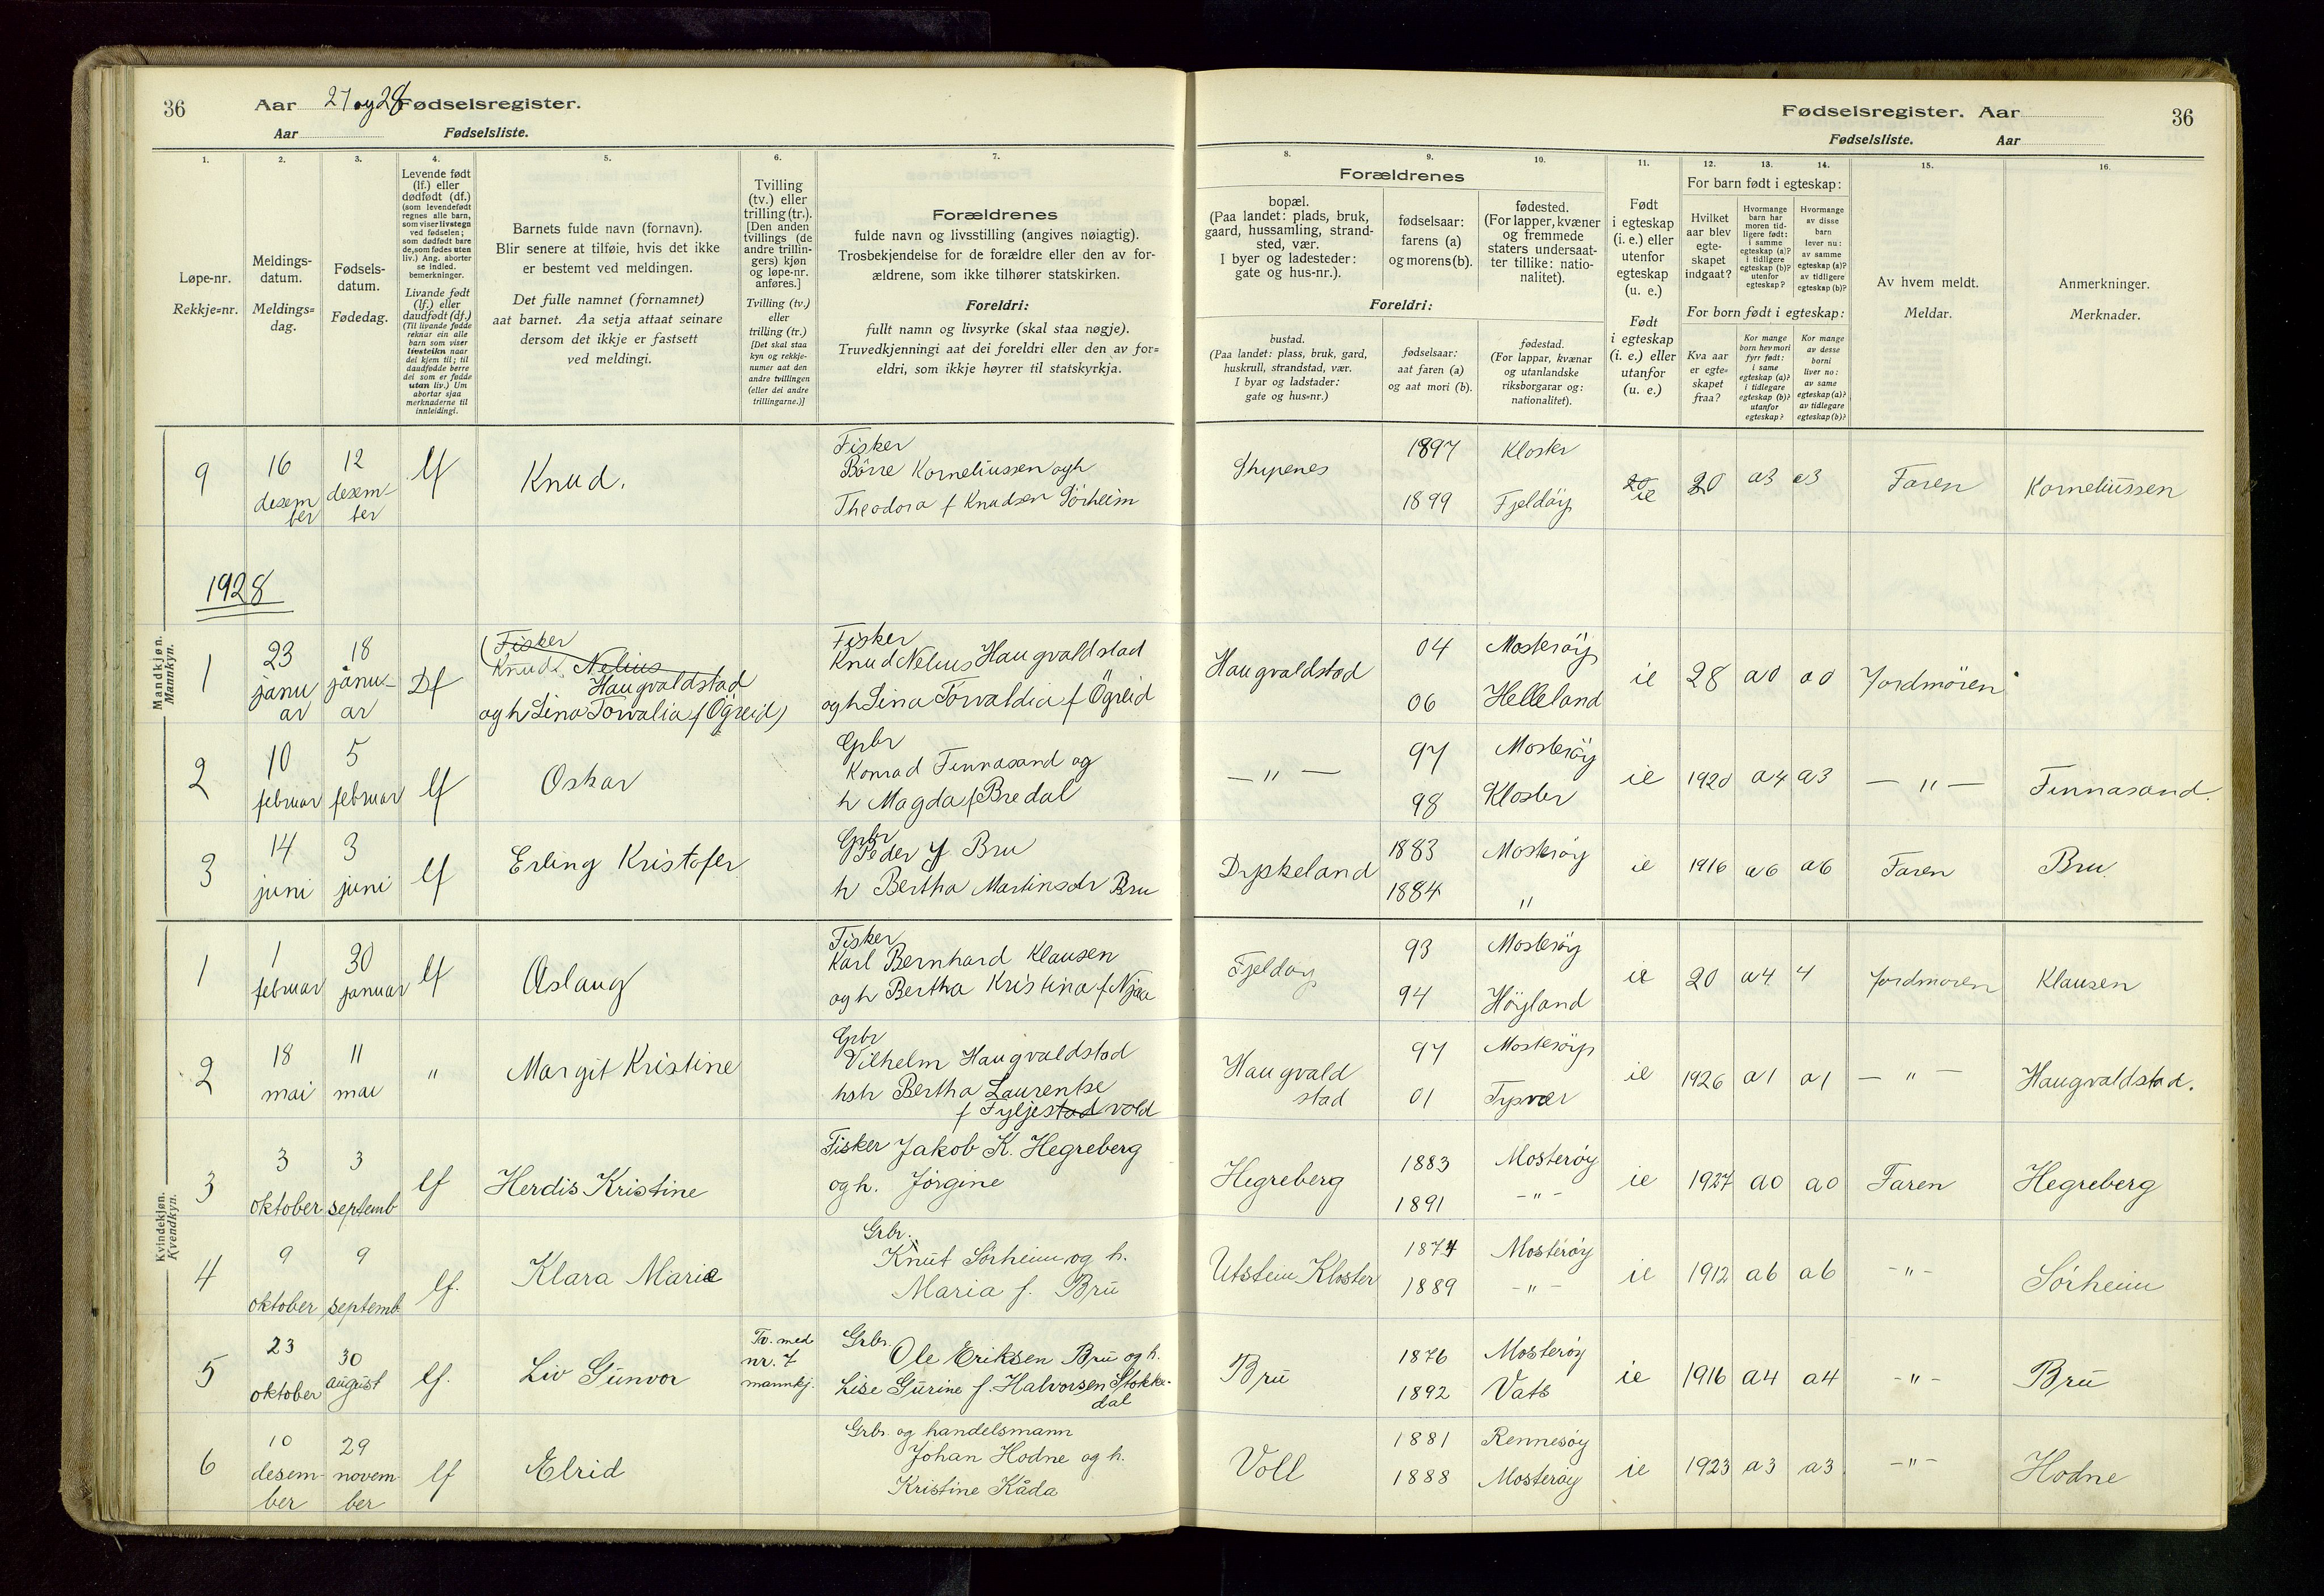 36
Aar 27 og 28 Fødselsregister.
Aar Fødselsliste.
Fødselsregister. Aar
36
Fødselsliste. Aar
1.
2.
3.
4.
5.
6.
7.
8.
9.
10.
11.
12.
13.
14.
15.
16.
Løpe-nr.
Rekkje=nr.
Meldings-
datum.
Meldings=
dag.
Fødsels-
datum.
Fødedag.
Levende født
(lf.) eller
dødfødt (df.)
(som levendefødt
regnes alle barn,
som viser livstegn
ved fødselen;
som dødfødt bare
de, som fødes uten
liv.) Ang. aborter
se indled.
bemerkninger.
Livande født
(lf.) eller
daudfødt (df.)
(Til livande fødde
reknar ein alle
barn som viser
livsteikn naar
dei kjem til; til
daudfødde berre
dei som er fødde
utan liv.) Um
abortar sjaa
merknaderne til
innleidingi.
Barnets fulde navn (fornavn).
Blir senere at tilføie, hvis det ikke
er bestemt ved meldingen.
Det fulle namnet (fornamnet)
aat barnet. Aa setja attaat seinare
dersom det ikkje er fastsett
ved meldingi.
Tvilling
(tv.) eller
trilling (tr.).
[Den anden
tvillings (de
andre trillin-
gers) kjøn
og løpe-nr.
anføres.]
Tvilling (tv.)
eller
trilling (tr.)
[Det skal staa
kyn og rekkje-
numer aat den
andre tvillingen
(eller dei andre
trillingarne.)]
Forældrenes
fulde navn og livsstilling (angives nøiagtig).
Trosbekjendelse for de forældre eller den av for-
ældrene, som ikke tilhører statskirken.
Foreldri:
fullt namn og livsyrke (skal staa nøgje).
Truvedkjenningi aat dei foreldri eller den av for=
eldri, som ikkje høyrer til statskyrkja.
Forældrenes
bopæl.
(Paa landet: plads, bruk,
gaard, hussamling, strand-
sted, vær.
I byer og ladesteder:
gate og hus-nr.).
fødselsaar:
farens (a)
og morens (b).
fødested.
(For lapper, kvæner
og fremmede
staters undersaat-
ter tillike: natio-
nalitet).
Foreldri:
bustad.
(Paa landet: plass, bruk, gard,
huskrull, strandstad, vær.
I byar og ladstader:
gate og hus=nr.)
fødselsaar:
aat faren (a)
og aat mori (b).
fødestad.
(For lappar, kvænar
og utanlandske
riksborgarar og:
nationalitet).
Født
i egteskap
(i. e.) eller
utenfor
egteskap
(u. e.)
Født
i egteskap
(i. e.) eller
utanfor
(u. e.)
For barn født i egteskap:
Hvilket
aar blev
egte-
skapet
indgaat?
Hvormange
barn har
moren tid-
ligere født:
i samme
egteskap (a)?
i tidligere
egteskap (b)?
utenfor
egteskap?
Hvormange
av disse
barn
lever nu:
av samme
egteskap (a)?
av tidligere
egteskap (b)?
For born født i egteskap:
Kva aar
er egte=
skapet
fraa?
Kor mange
born hev mori
fyrr født:
i same
egteskap (a)?
i tidlegare
egteskap (b)?
utanfor
egteskap?
Kor mange
av desse
borni
liver no:
av same
egteskap (a)?
av tidlegare
egteskap (b)?
Av hvem meldt.
Meldar.
Anmerkninger.
Merknader.
Mandkjøn.
Mannkyn.
9 16 desem ber 12 desem- ber lf Knud.
Fisker
Børre Korneliussen ogh
Theodora f Knudsen Sörheim
1897 Kloster
1899 Fjeldöy
ie 20 a3 a3 Faren Korneliussen
1928
1 23 janu ar 18 janu- ar Df
(Fisker
Knud Nelius
Haugvaldstad
og h Lina Torvalia f Ögreid)
Fisker
Knud Nelius Haugvaldstad
og h Lina Torvaldia f Ögreid
Haugvaldstad
04 Mosteröy
06 Helleland
ie 28 a0 a0 Jordmören
2 10 februar 5 februar lf Oskar
Grbr
Konrad Finnasand og
h Magda f Bredal
— " —
97 Mosteröy
98 Kloster
ie 1920 a4 a3 — " — Finnasand.
3 14 juni 3 juni lf Erling Kristofer
Grbr
Peder J Bru
h Bertha Martinsdr Bru
Dyskeland
1883 Mosteröy
1884 "
ie 1916 a6 a6 Faren Bru.
Kvindekjøn.
Kvendkyn.
1 1 februar 30 januar lf Aslaug
Fisker
Karl Bernhard Klausen
og h Bertha Kristina f Njaa
Fjeldöy
93 Mosteröy
94 Höyland
ie 20 a4 4 Jordmoren Klausen
2 18 mai 11 mai " Margit Kristine
Grbr
Vilhelm Haugvaldstad
hsh Bertha Laurentse
f Fyljestad vold
Haugvald
stad
97 Mosteröy
01 Tysvær
ie 1926 a1 a1 — " — Haugvaldstad.
3 3 oktober 3 septemb lf Herdis Kristine
Fisker Jakob K. Hegreberg
og h. Jørgine
Hegreberg
1883 Mosterøy
1891 - " -
ie 1927 a0 a0 Faren Hegreberg
4 9 oktober 9 septemb. lf. Klara Marie
Grbr.
Knut Sørheim og h.
Maria f. Bru
Utstein Kloster
1874 Mosterøy
1889 - " -
ie 1912 a6 a6 - " - Sørheim
5 23 oktober 30 august lf. Liv Gunvor
Tv. med
nr. 7
mannkj.
Grbr.
Ole Eriksen Bru og h.
Lise Gurine f. Halvorsen Stokke-
dal
Bru
1876 Mosterøy
1892 Vats
ie 1916 a4 a4 - " - Bru
6 10 desem- ber 29 novem- ber lf Elrid
Grbr. og handelsmann
Johan Hodne og h.
Kristine Kåda
Voll
1881 Rennesøy
1888 Mosterøy
ie 1923 a3 a3 - " - Hodne